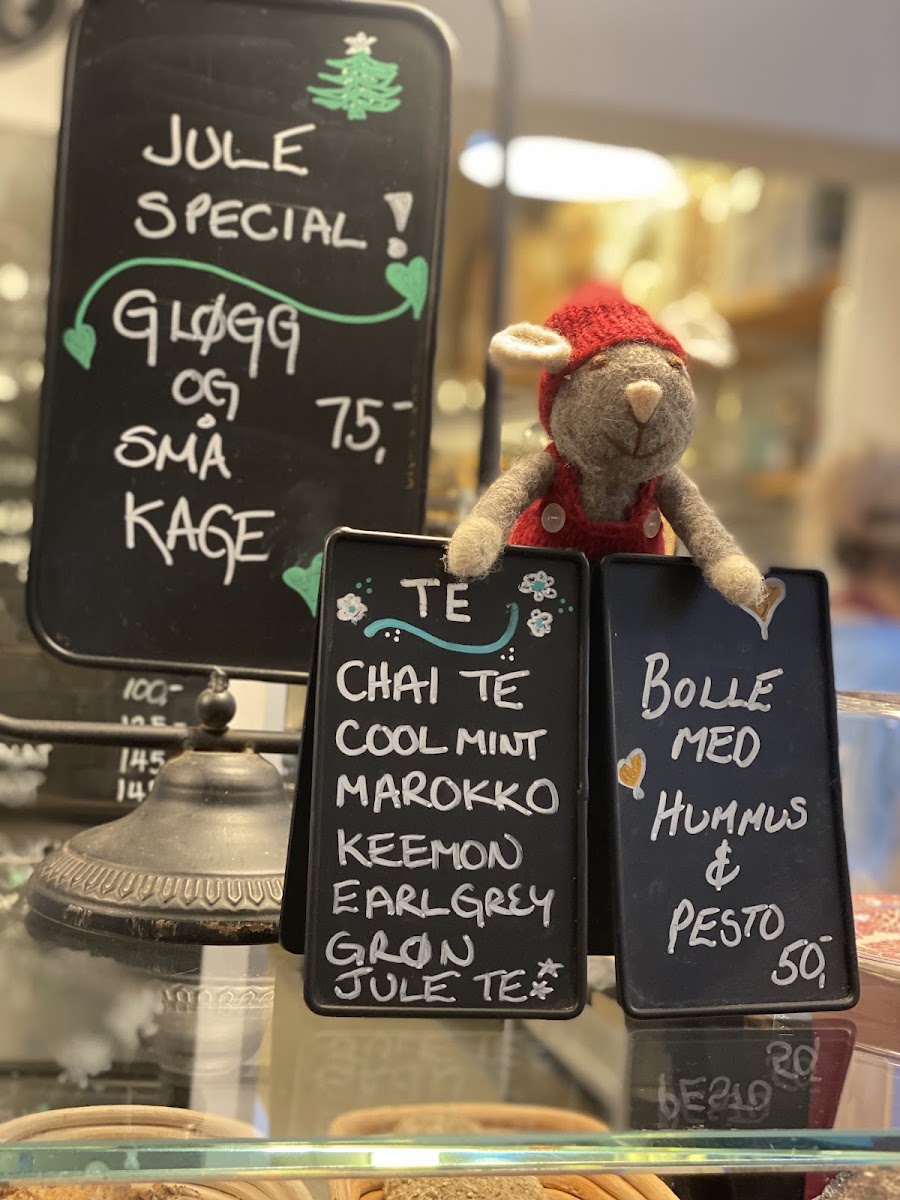 JULE
SPECIAL!
GLØGG
OG
SMÅ
KAGE
75,-
TE
CHAI TE
COOL MINT
MAROKKO
KEEMON
EARL GREY
GRØN
JULE TE
BOLLE
MED
HUMMUS
&
PESTO
50,-
100,-
145